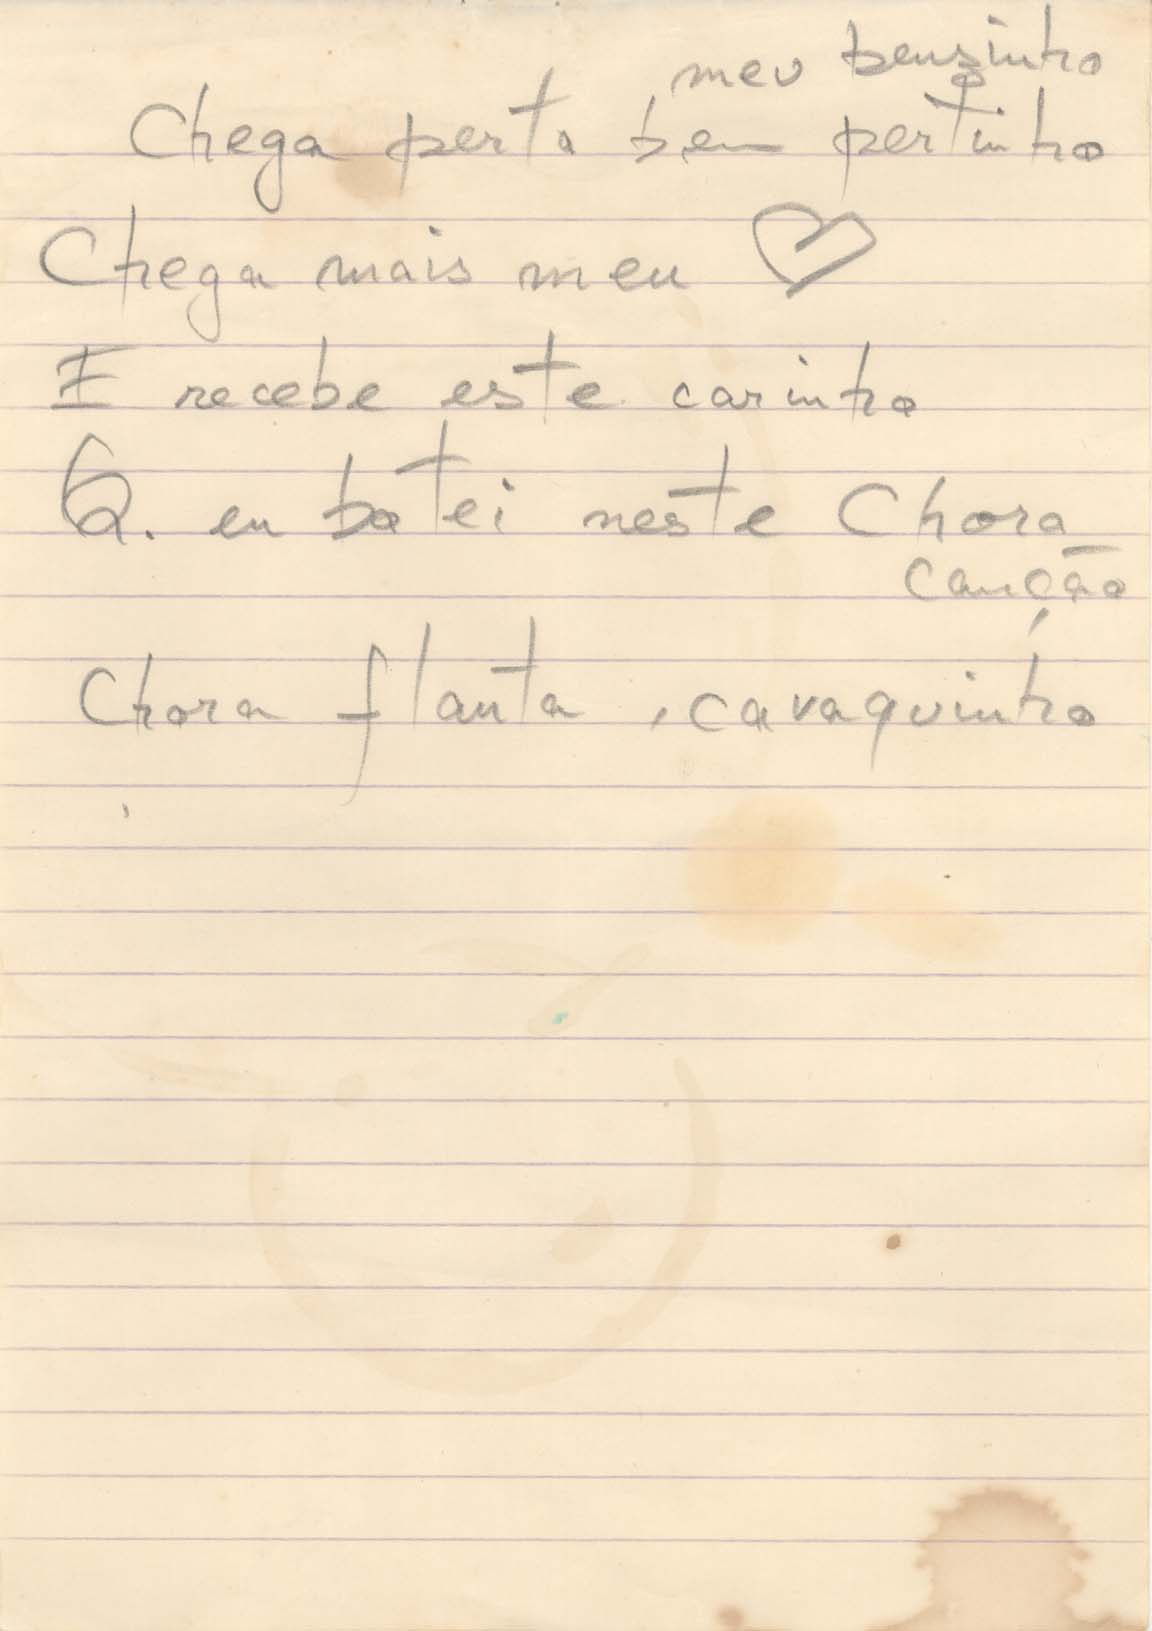 meu benzinho
Chega perto bem pertinho
Chega mais meu ♡
E recebe este carinho
Q. eu botei neste Choro
canção
Chora flauta, cavaquinho